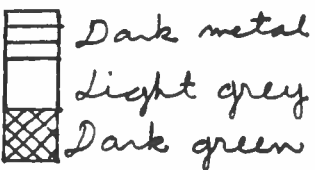 Dark metal
Light grey
Dark green